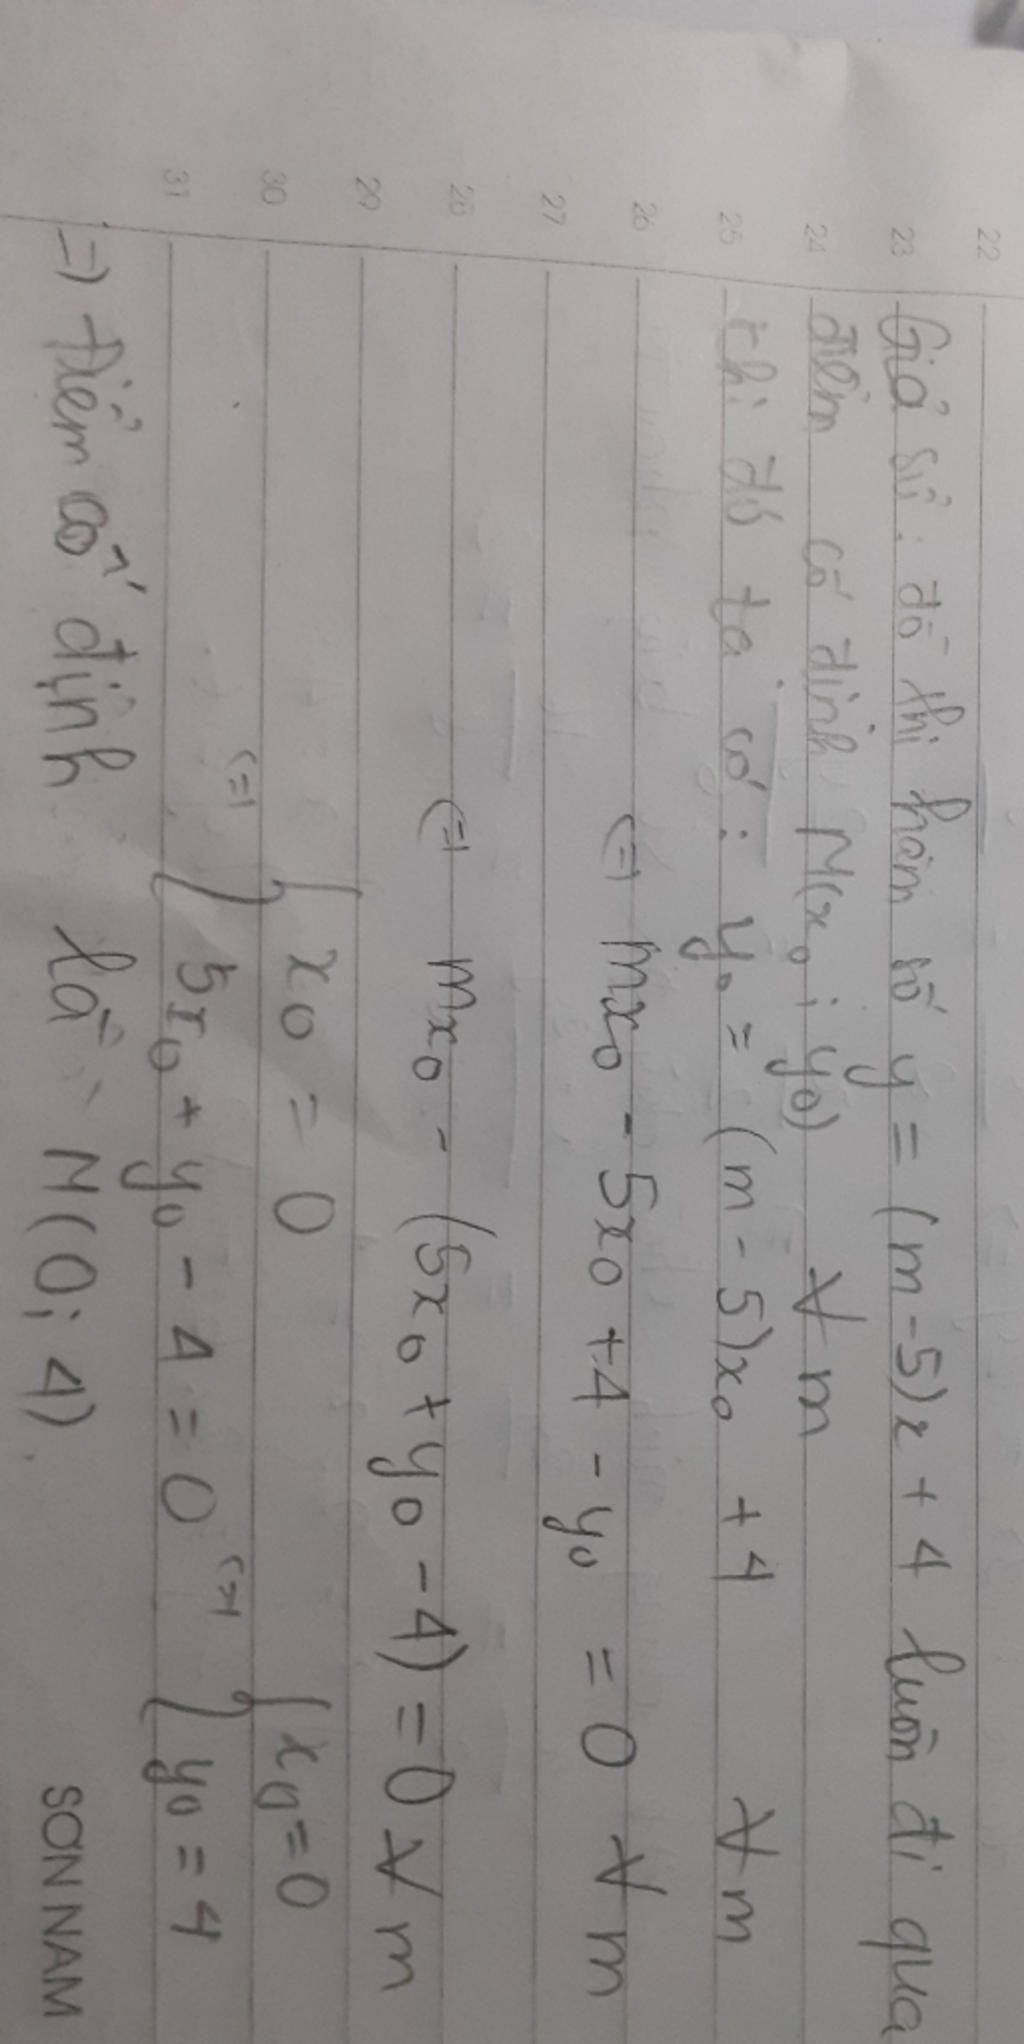 22
23 Giả sử: đồ thị hàm số y = (m - 5)x + 4 luôn đi qua
24 điểm cố định M(x₀; y₀) ∀ m
25 khi đó ta có: y₀ = (m - 5)x₀ + 4 ∀ m
26 (=) mx₀ - 5x₀ + 4 - y₀ = 0 ∀ m
27
28 (=) mx₀ - (5x₀ + y₀ - 4) = 0 ∀ m
29
30 (=) { x₀ = 0 (=) { x₀ = 0
31 { 5x₀ + y₀ - 4 = 0 { y₀ = 4
=) Điểm cố định là M(0; 4).
SƠN NAM